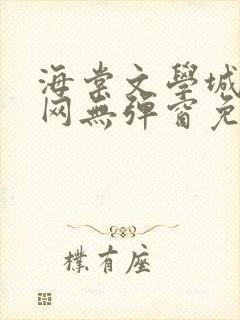 海棠文學城
网無彈窗免
樸有座